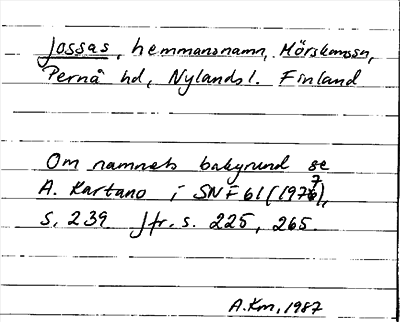 Jossas, hemmansnamn, Mörskomssn,
Pernå hd, Nylands l. Finland
Om namnets bakgrund se
A. Kartano i SNF 61 (1977),
s. 239 Jfr. s. 225, 265.
A.Km, 1987